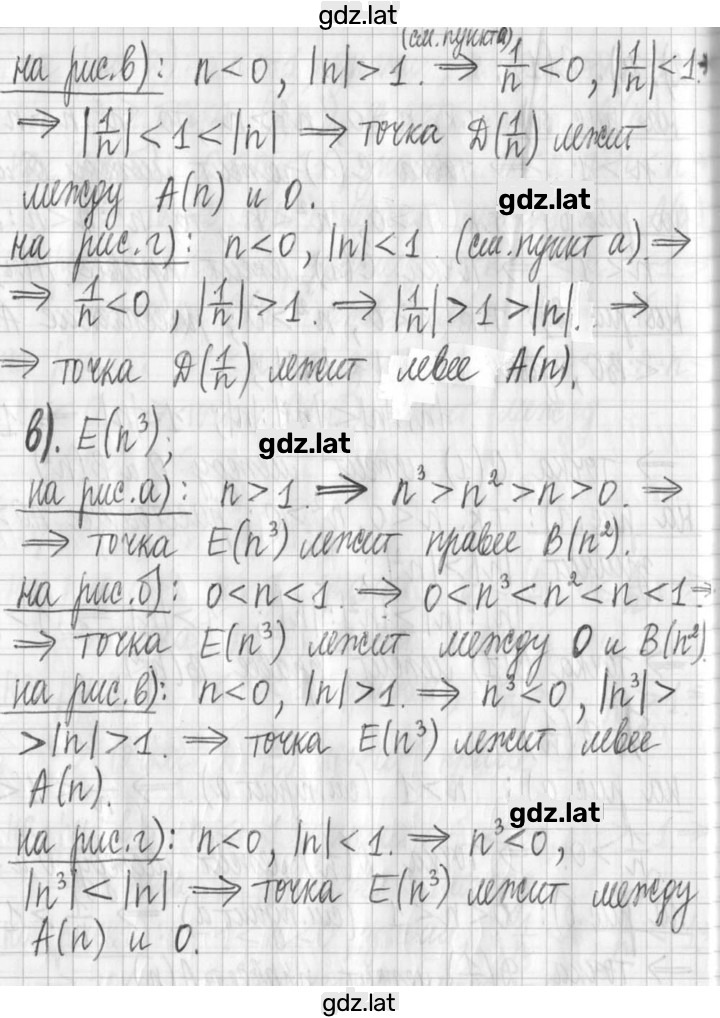 gdz.lat
(см. пункт а)
на рис. в): n < 0, |n| > 1. ⇒ 1/n < 0, |1/n| < 1. ⇒
⇒ |1/n| < 1 < |n| ⇒ точка D(1/n) лежит
между A(n) и 0.
gdz.lat
на рис. г): n < 0, |n| < 1 (см. пункт а). ⇒
⇒ 1/n < 0, |1/n| > 1. ⇒ |1/n| > 1 > |n|. ⇒
⇒ точка D(1/n) лежит левее A(n).
в). E(n³);
gdz.lat
на рис. а): n > 1. ⇒ n³ > n² > n > 0. ⇒
⇒ точка E(n³) лежит правее B(n²).
на рис. б): 0 < n < 1. ⇒ 0 < n³ < n² < n < 1. ⇒
⇒ точка E(n³) лежит между 0 и B(n²).
на рис. в): n < 0, |n| > 1. ⇒ n³ < 0, |n³| >
> |n| > 1. ⇒ точка E(n³) лежит левее
A(n).
gdz.lat
на рис. г): n < 0, |n| < 1. ⇒ n³ < 0,
|n³| < |n|. ⇒ точка E(n³) лежит между
A(n) и 0.
gdz.lat